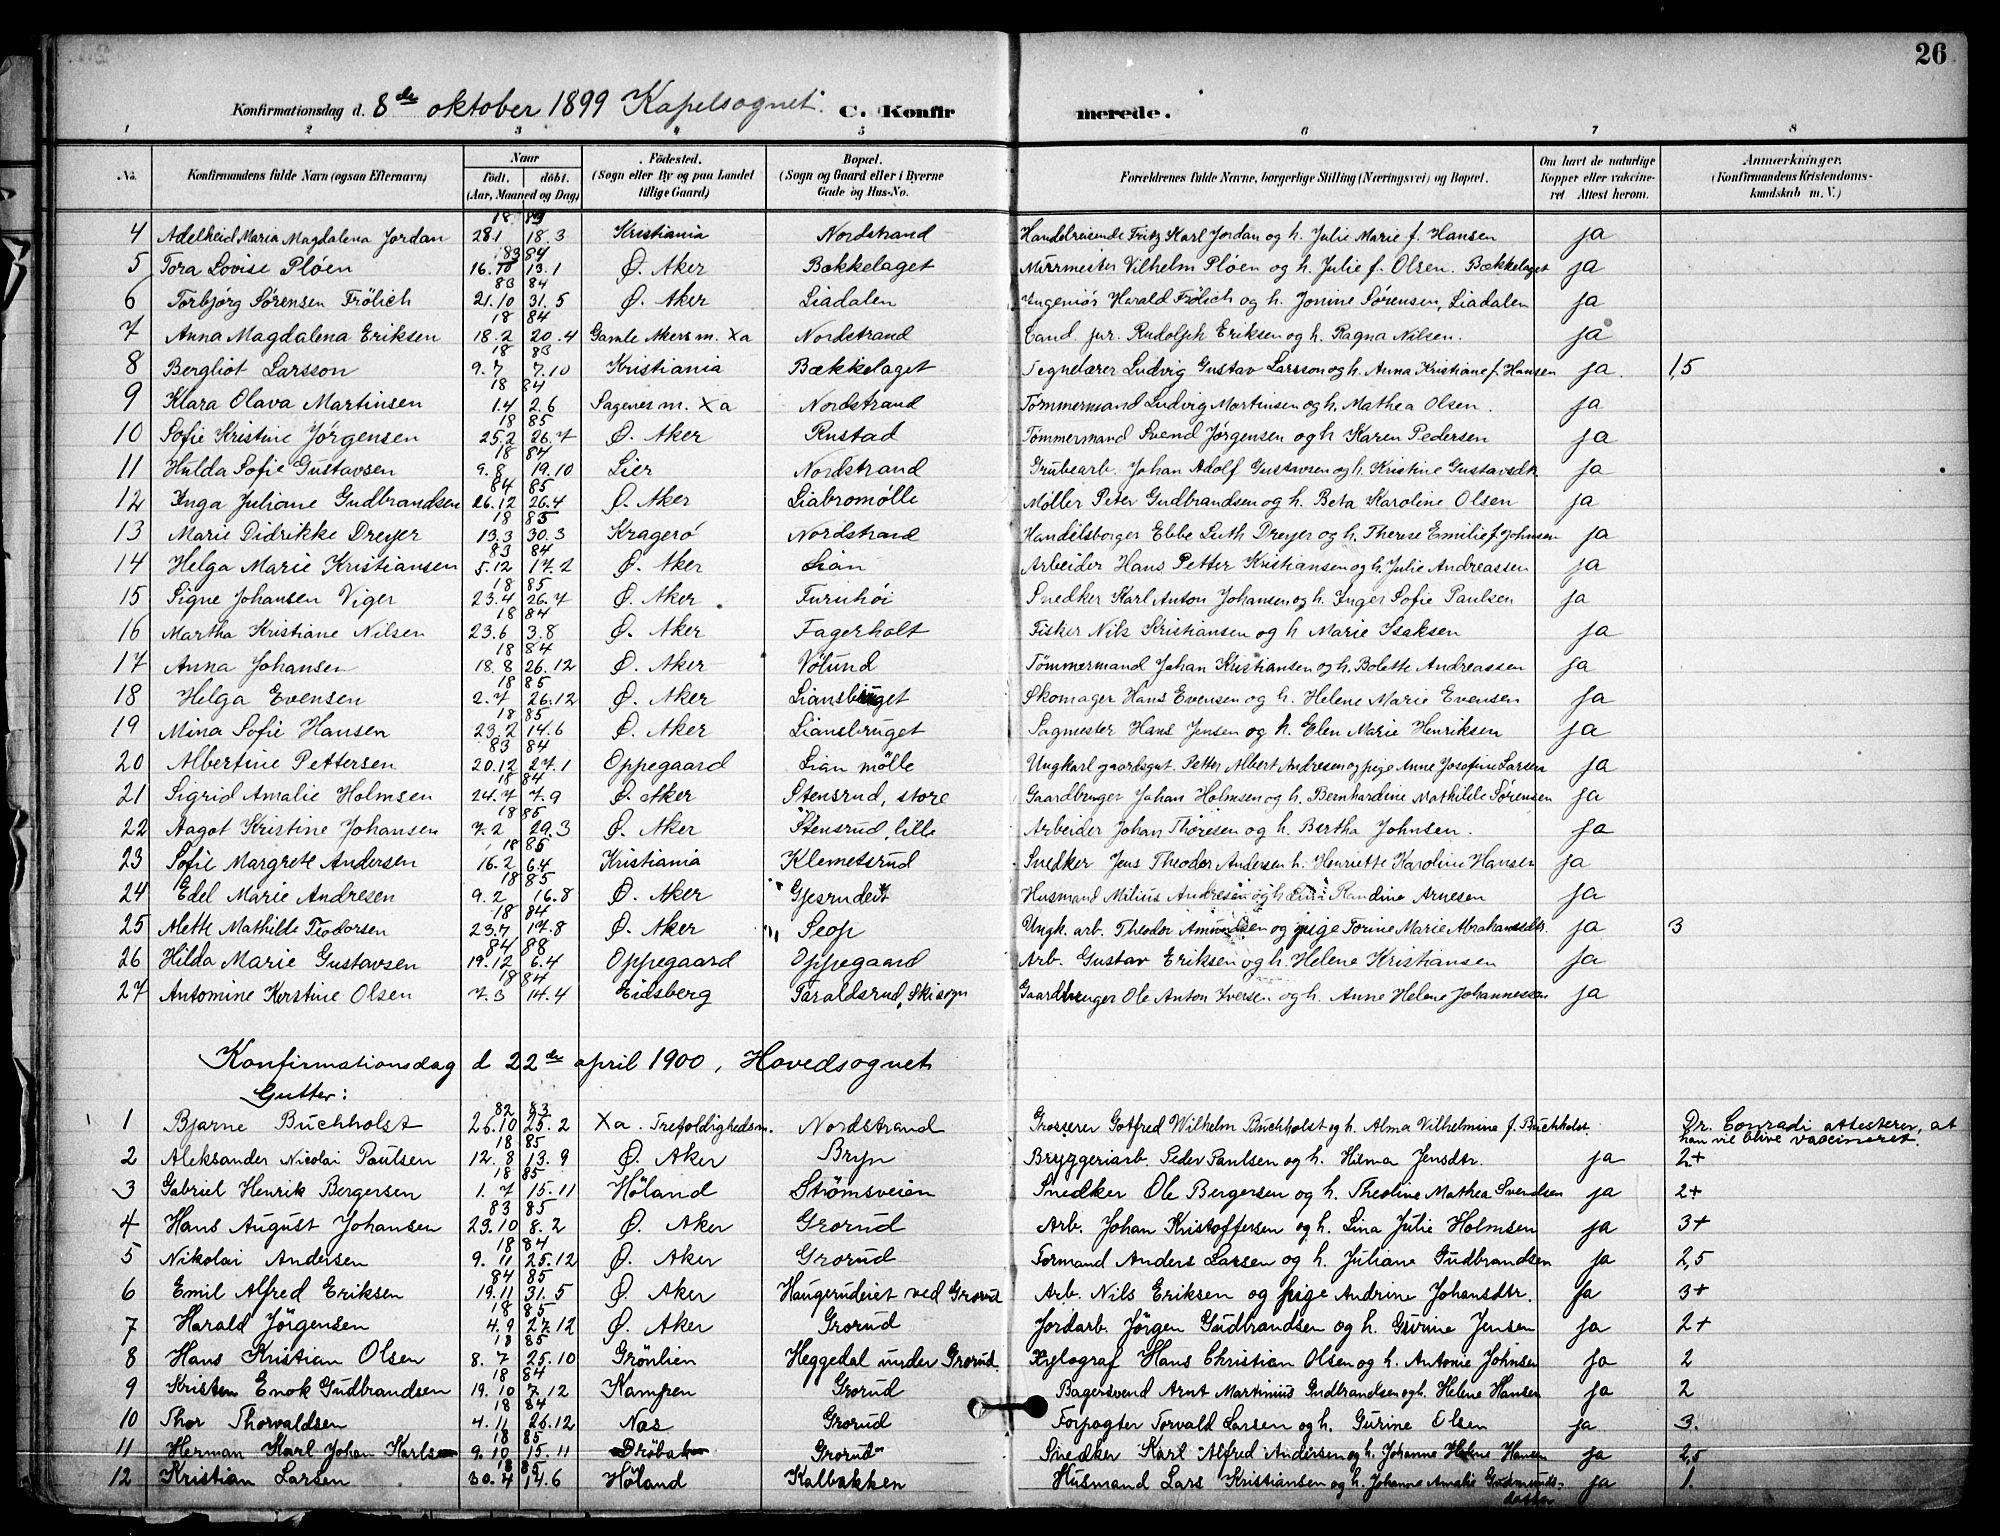 26
Konfirmationsdag d. 8de oktober 1899 Kapelsognet. C. Konfirmerede.
1 2 3 4 5 6 7 8
No. Konfirmandens fulde Navn (ogsaa Efternavn) Naar Födt. döbt. (Aar, Maaned og Dag) Födested. (Sogn eller By og paa Landet tillige Gaard) Bopæl. (Sogn og Gaard eller i Byerne Gade og Hus-No.) Forældrenes fulde Navne, borgerlige Stilling (Næringsvei) og Bopæl. Om havt de naturlige Kopper eller vakcineret Attest herom. Anmærkninger. (Konfirmandens Kristendomskundskab m. V.)
18 83
4 Adelheid Maria Magdalena Jordan 28.1 18.3 Kristiania Nordstrand Handelreiende Fritz Karl Jordan og h. Julie Marie f. Hansen ja
83 84
5 Tora Lovise Plöen 16.10 13.1 Ø. Aker Bækkelaget Murmester Vilhelm Plöen og h. Julie f. Olsen. Bækkelaget ja
83 84
6 Torbjørg Sørensen Frölich 21.10 31.5 Ø. Aker Liadalen Ingeniör Harald Frölich og h. Jonine Sørensen, Liadalen ja
18 84
7 Anna Magdalena Eriksen 18.2 20.4 Gamle Akers m. Xa Nordstrand Cand. jur. Rudolph Eriksen og h. Ragna Nilsen. ja
18 83
8 Bergliot Larsson 9.7 7.10 Kristiania Bækkelaget Tegnelærer Ludvig Gustav Larsson og h. Anna Kristiane f. Hansen ja. 1,5
18 84
9 Klara Olava Martinsen 1.4 2.6 Sagenes m. Xa Nordstrand Tømmermand Ludvig Martinsen og h. Mathea Olsen. ja
18 85
10 Sofie Kristine Jørgensen 25.2 26.7 Ø. Aker Rustad Tömmermand Svend Jørgensen og h Karen Pedersen ja
18 84
11 Hulda Sofie Gustavsen 9.8 19.10 Lier Nordstrand Grubearb. Johan Adolf Gustavsen og h. Kristine Gustavsdt. ja
84 85
12 Inga Juliane Gudbrandsen 26.12 26.4 Ø. Aker Liabromølle Møller Peter Gudbrandsen og h. Beta Karoline Olsen ja
18 85
13 Marie Didrikke Dreyer 13.3 30.3 Kragerö Nordstrand Handelsborger Ebbe Luth Dreyer og h. Therese Emilie f. Johnsen ja
83 84
14 Helga Marie Kristiansen 5.12 17.2 Ø. Aker Lian Arbeider Hans Petter Kristiansen og h. Julie Andreassen ja
18 85
15 Signe Johansen Viger 23.4 26.7 Ø. Aker Furuhöi Snedker Karl Anton Johansen og h. Inger Sofie Paulsen ja
18 84
16 Martha Kristiane Nilsen 23.6 3.8 Ø. Aker Fagerholt Fisker Nils Kristiansen og h Marie Isaksen ja
18 84
17 Anna Johansen 18.8 26.12 Ø. Aker Vølund Tømmermand Johan Kristiansen og h. Bolette Andreassen ja
18 85
18 Helga Evensen 2.7 26.12 Ø. Aker Liansbruget Skomager Hans Evensen og h. Helene Marie Evensen ja
18 85
19 Mina Sofie Hansen 23.2 14.6 Ø. Aker Liansbruget Sagmester Hans Jensen og h. Elen Marie Henriksen ja
83 84
20 Albertine Pettersen 20.12 27.1 Oppegaard Lian mölle Ungkarl gaardsgut. Petter Albert Andresen og pige Anne Josefine Larsen ja
18 84
21 Sigrid Amalie Holmsen 24.7 7.9 Ø. Aker Stensrud, store Gaardbruger Johan Holmsen og h. Bernhardine Mathilde Sørensen ja
18 85
22 Aagot Kristine Johansen 7.2 29.3 Ø. Aker Stensrud, lille Arbeider Johan Thoresen og h. Bertha Johnsen. ja
18 85
23 Sofie Margrete Andersen 16.2 6.4 Kristiania Klemetsrud Snedker Jens Theodor Andersen h. Henriette Karoline Hansen ja
18 85
24 Edel Marie Andresen 9.2 16.8 Ø. Aker Gjersrudeit Husmand Milius Andresen og h Randine Arnesen ja
18 84
25 Alette Mathilde Teodorsen 23.7 17.8 Ø. Aker Seop Ungk. arb. Theodor Amundsen og pige Torine Marie Abrahamsdtr. ja 3
84 88
26 Hilda Marie Gustavsen 19.12 6.4 Oppegaard Oppegaard Arb. Gustav Eriksen og h. Helene Kristiansen ja
18 84
27 Antomine Kerstine Olsen 7.3 14.4 Eidsberg Taraldsrud, Ski sogn Gaardbruger Ole Anton Iversen og h. Anne Helene Johannessen ja
Konfirmationsdag d 22de april 1900, Hovedsognet
Gutter:
82 83
1 Bjarne Buchholst 26.10 25.2 Xa. Trefoldighedsm. Nordstrand Grosserer Gotfred Wilhelm Buchholst og h. Alma Vilhelmine f. Buchholst. Dr. Conradi attesterer, at han vil blive vaccineret.
18 85
2 Aleksander Nicolai Paulsen 12.8 13.9 Ø. Aker Bryn Bryggeriarb. Peder Paulsen og h. Hilma Jensdtr. ja 2+
18 85
3 Gabriel Henrik Bergersen 1.7 15.11 Höland Strömsveien Snedker Ole Bergersen og h. Theoline Mathea Svendsen ja 2+
83 85
4 Hans August Johansen 23.10 8.2 Ø. Aker Grorud Arb. Johan Kristoffersen og h. Lina Julie Holmsen ja 3+
18 84
5 Nikolai Andersen 9.11 25.12 Ø. Aker Grorud Formand Anders Larsen og h. Juliane Gudbrandsen ja 2,5
84 85
6 Emil Alfred Eriksen 19.11 31.5 Ø. Aker Haugerudeiet ved Grorud Arb. Nils Eriksen og pige Andrine Johansdtr. ja 3+
18 85
7 Harald Jörgensen 4.9 27.12 Ø. Aker Grorud Jordarb. Jörgen Gudbrandsen og h. Gurine Jensen ja 2+
18 85
8 Hans Kristian Olsen 8.7 25.10 Grönlien Heggedal under Grorud. Xylograf Hans Christian Olsen og h. Antonie Johnsen ja 2
18 84
9 Kristen Enok Gudbrandsen 19.10 7.12 Kampen Grorud Bagersvend Arnt Martinius Gudbrandsen og h. Helene Hansen ja 2
18 84
10 Thor Thorvaldsen 4.11 26.12 Nas Grorud Forpagter Torvald Larsen og h. Gurine Olsen ja 3.
18 85
11 Herman Karl Johan Karlsen 9.10 15.11 Dröbak Grorud Snedker Karl Alfred Andersen og h. Johanne Helene Hansen ja 2,5
18 85
12 Kristian Larsen 30.4 14.6 Höland Kalbakken Husmand Lars Kristiansen og h. Johanne Amalie Gudmundsdatter ja 1.